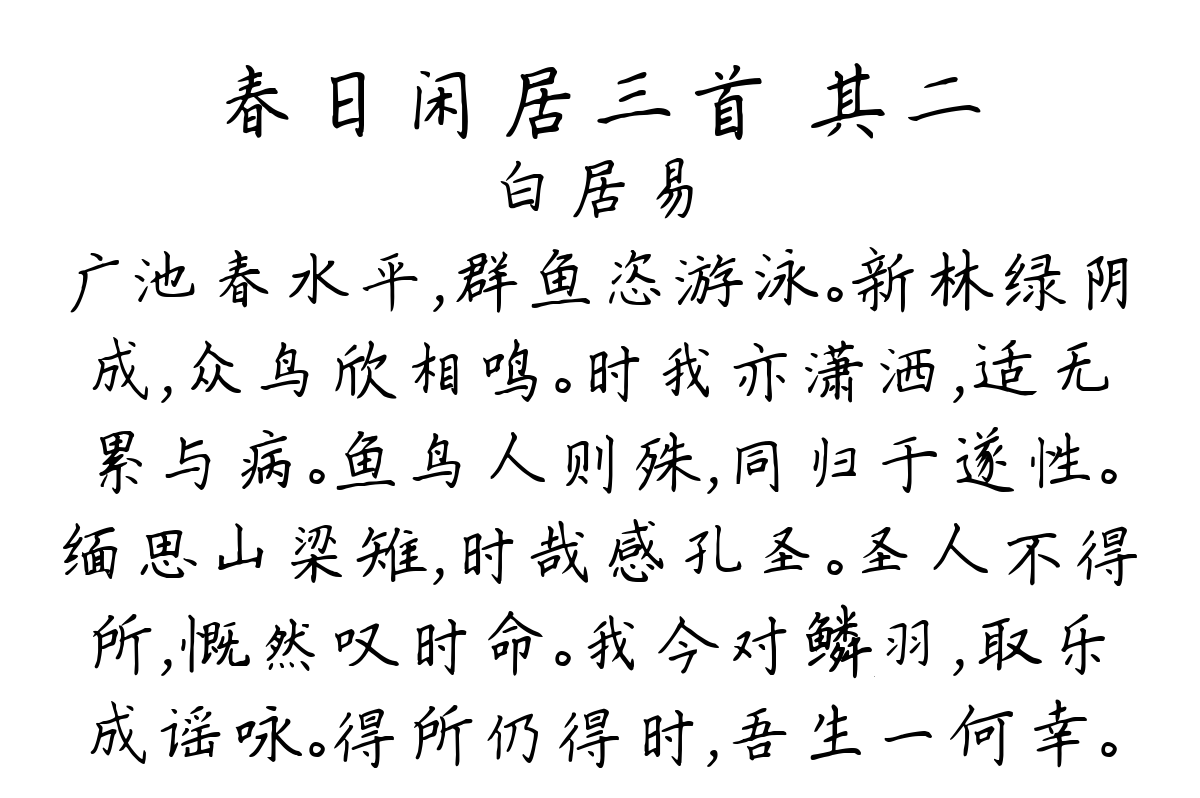 春日闲居三首 其二
白居易
广池春水平,群鱼恣游泳。新林绿阴
成,众鸟欣相鸣。时我亦潇洒,适无
累与病。鱼鸟人则殊,同归于遂性。
缅思山梁雉,时哉感孔圣。圣人不得
所,慨然叹时命。我今对鳞羽,取乐
成谣咏。得所仍得时,吾生一何幸。